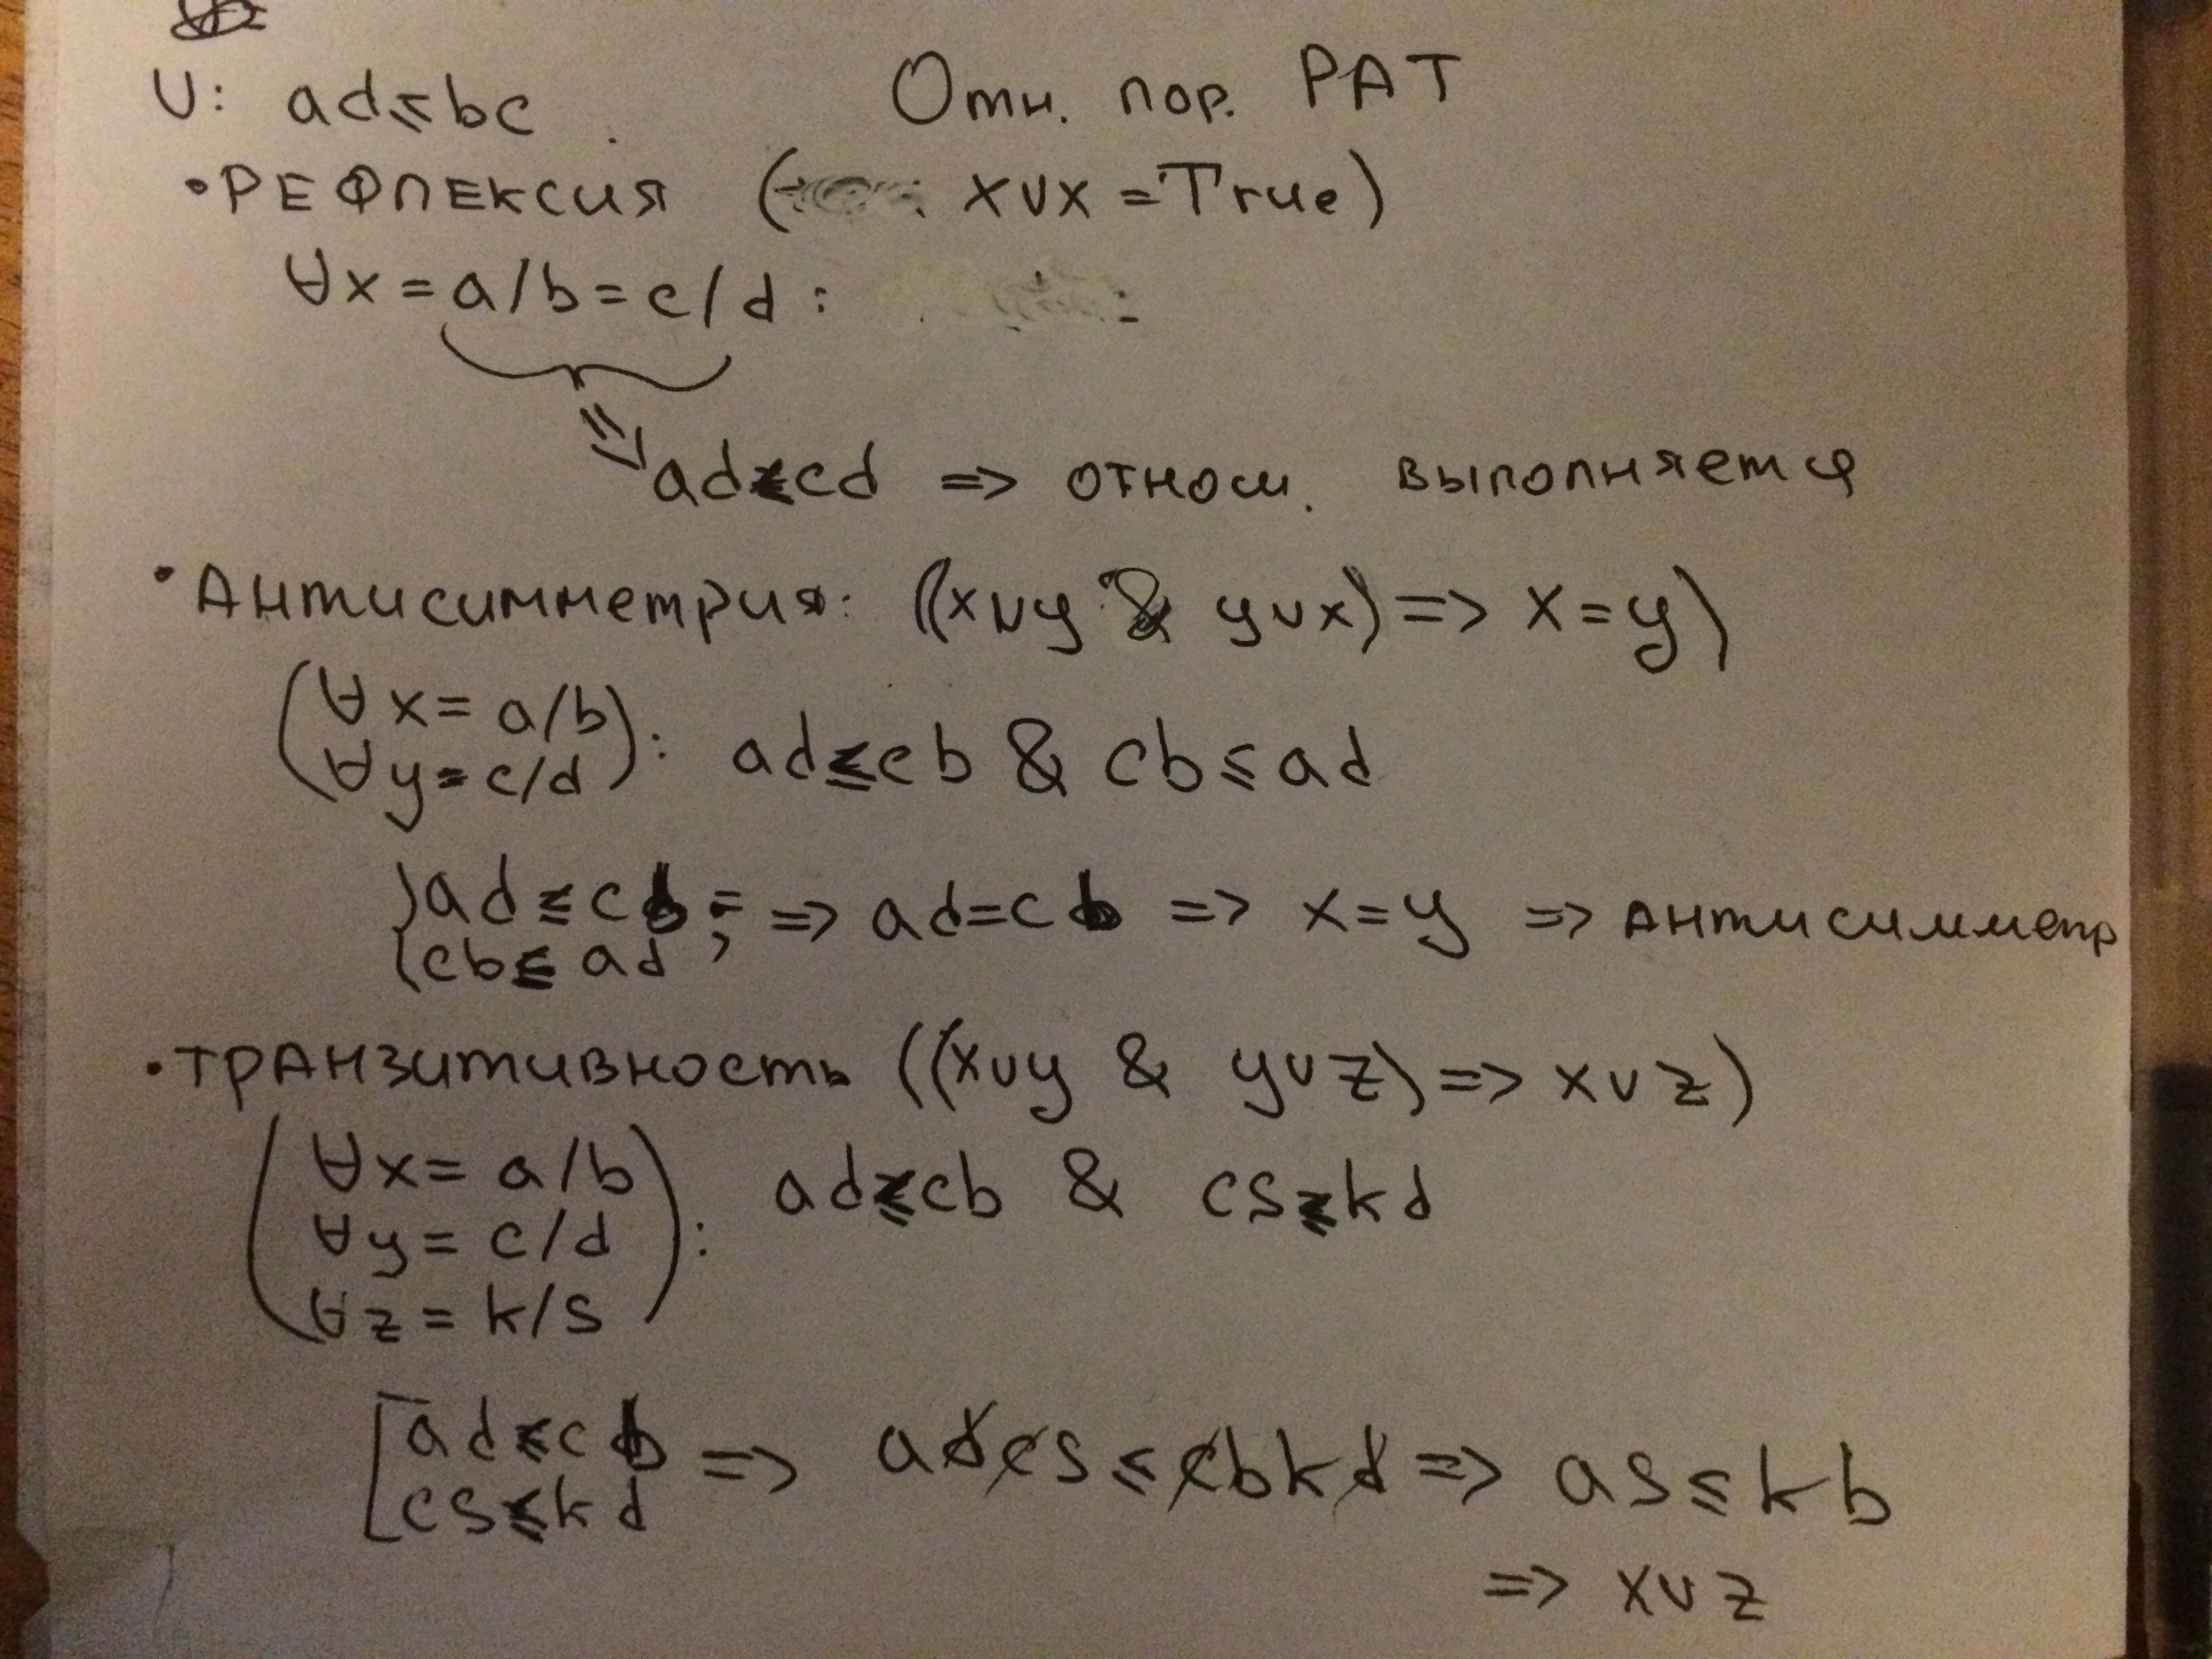 U: ad≤bc Отн. пор. РАТ
• РЕФЛЕКСИЯ ( x∪x = True)
∀x = a/b = c/d :
=> ad≤cd => относш. выполняется
• Антисимметрия: ((x∪y & y∪x) => x=y)
(∀x = a/b
∀y = c/d): ad≤cb & cb≤ad
{ad≤cb;
{cb≤ad; => ad=cb => x=y => Антисимметр
• ТРАНЗИТИВНОСТЬ ((x∪y & y∪z) => x∪z)
(∀x = a/b
∀y = c/d
∀z = k/s): ad≤cb & cs≤kd
[ad≤cb
cs≤kd => adcs≤cbkd => as≤kb
=> x∪z